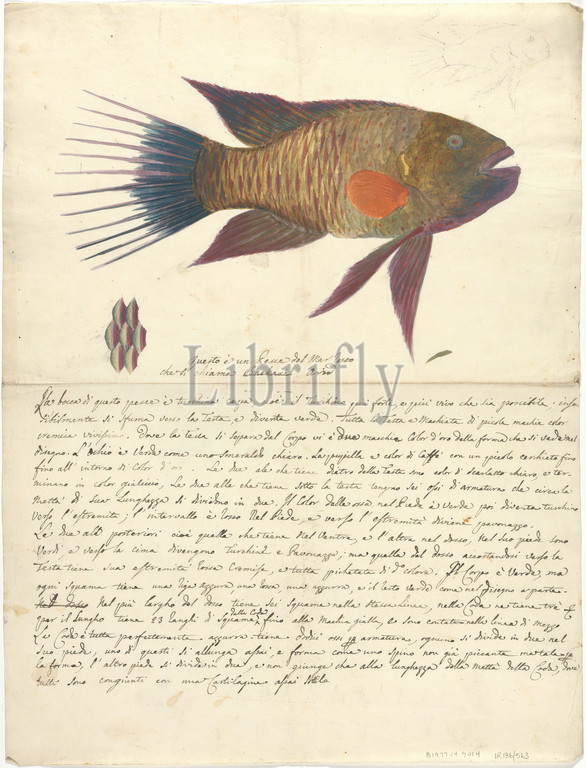 Questo è un Pesce del Mar Rosso
che si chiama
Librifly
La bocca di questo pesce è turchina cioè il turchino più forte, e più vivo che sia possibile. insen
sibilmente si sfuma verso la Testa, e diventa verde. Tutta la Testa e Machiata di picole machie color
cremisi vivissimo. Dove la testa si separa dal Corpo vi è due macchie Color d'oro della forma che si vede nel
disegno. L'ochio è Verde come uno Smeraldo chiaro. La pupilla e color di Caffè con un picolo cerchietto fino
fino all'intorno di Color d'oro. Le due ale che tiene dietro della testa sono color di Scarlatto chiaro, e ter-
minano in color gialiccio, Le due alle che tiene sotto la testa tengono sei ossi di armatura che circa la
metta di sua lunghezza si dividono in due. Il Color delle ossa nel Piede è verde poi diventa turchino
verso l'estremita; l'intervallo è Rosso Nel Piede, e verso l'estremità diviene pavonazzo.
Le due alli posteriori cioè quella che tiene nel Ventre, e l'altra nel dosso, Nel suo piede sono
Verdi, e verso la cima divengono Turchine e Pavonazzo; ma quella del dosso accostandosi verso la
Testa tiene sua estremità Rossa Cremisa, e tutta pichetata di d.o colore. Il Corpo è Verde, ma
ogni Squama tiene una Riga Azzurra, una Rossa, una azzurra, e il resto Verde come nel disegno aparte.
Nel più largho del dosso tiene sei Squame nella stessa Linea, nella Coda ne tiene tre
per il lungho tiene 23 ranghi di Squame dalla Coda fino alla Machia gialla, e sono contate nella linea di mezzo
La Coda è tutta perfettamente azzurra tiene Ordici ossi di armatura, ognuno si divide in due nel
suo piede, uno di questi si allunga assai, e forma come uno spino non già piccante ma tale
la forma, l'altro piede si divide in due, e non giunge che alla lunghezza della metta della Coda, dove
tutti sono congiunti con una Cartilagine assai
B1977.14.9014